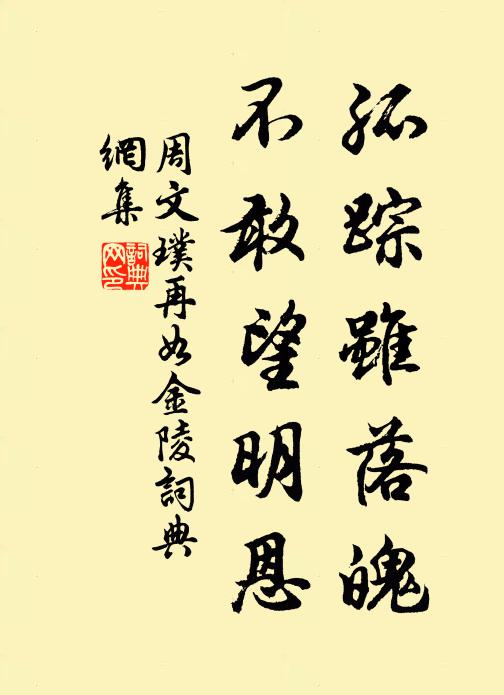 孤踪雖落魄
不敢望明恩
周文璞再如金陵詞典
網集
詞典
网印